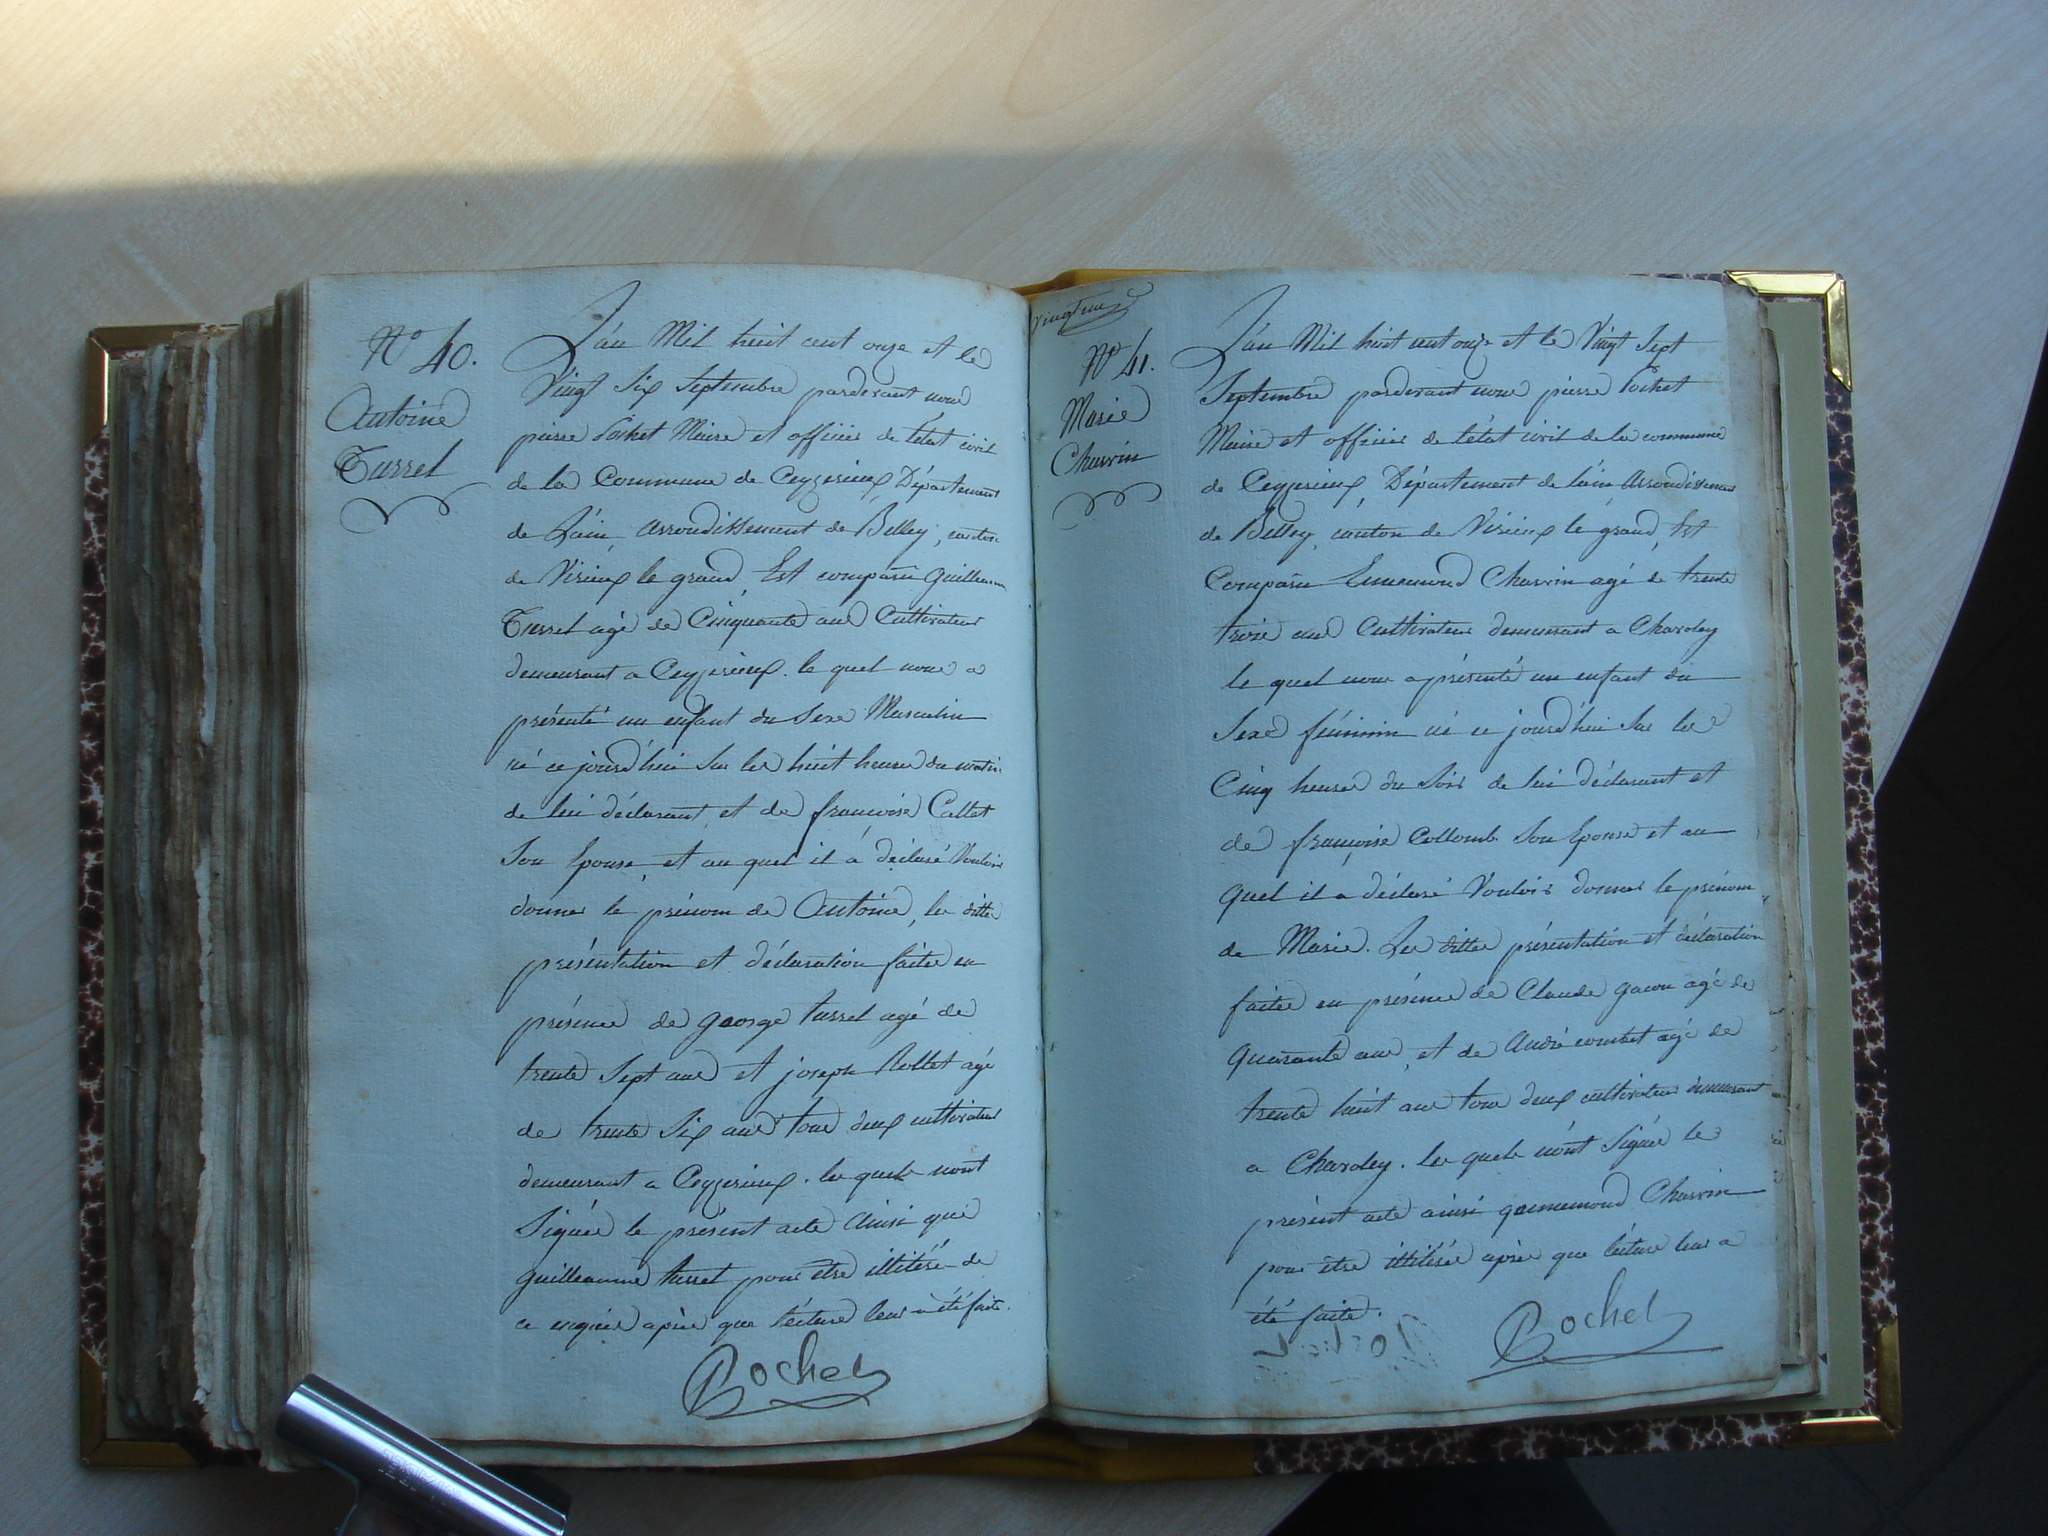 N° 40.
Antoine
Turrel
L'an Mil huit cent onze et le
Vingt Six Septembre pardevant nous
pierre Pochet Maire et officier de l'état civil
de la Commune de Ceyzerieux Département
de L'ain, arrondissement de Belley, canton
de Virieux le grand, Est comparu Guilleaume
Turrel agé de Cinquante ans Cultivateur
demeurant a Ceyzerieux. le quel nous a
présenté un enfant du Sexe Masculin
né ce jourd'hui Sur les huit heures du matin
de lui déclarant et de françoise Callet
Son Epouse, et au quel il à déclaré Vouloir
donner le prénom de Antoine, les dittes
présentation et déclaration faites en
présence de george turrel agé de
trente Sept ans et joseph Rollet agé
de trente Six ans tous deux cultivateurs
demeurant a Ceyzerieux. les quels n'ont
Signés le présent acte Ainsi que
guilleaume turrel pour être illitéré de
ce enquis après que lécture leur a été faite.
Pochet
N° 41.
Marie
Charvin
L'an Mil huit cent onze et le Vingt Sept
Septembre pardevant nous pierre Pochet
Maire et officier de l'état civil de la commune
de Ceyzerieux, Département de l'ain Arrondissement
de Belley, canton de Virieux le grand, Est
Comparu Ennemond Charvin agé de trente
trois ans Cultivateur demeurant a Charoley
le quel nous a présenté un enfant du
Sexe féminin né ce jourd'hui Sur les
Cinq heures du Soir de lui déclarant et
de françoise Collomb Son Epouse et au
quel il a déclaré Vouloir donner le prénom
de Marie. Les dittes présentation et déclaration
faites en présence de Claude gacon agé de
quarante ans, et de André combet agé de
trente huit ans tous deux cultivateurs demeurant
a Charoley. les quels n'ont Signés le
présent acte ainsi qennemond Charvin
pour être illitérés après que lécture leur a
été faite.
Pochet